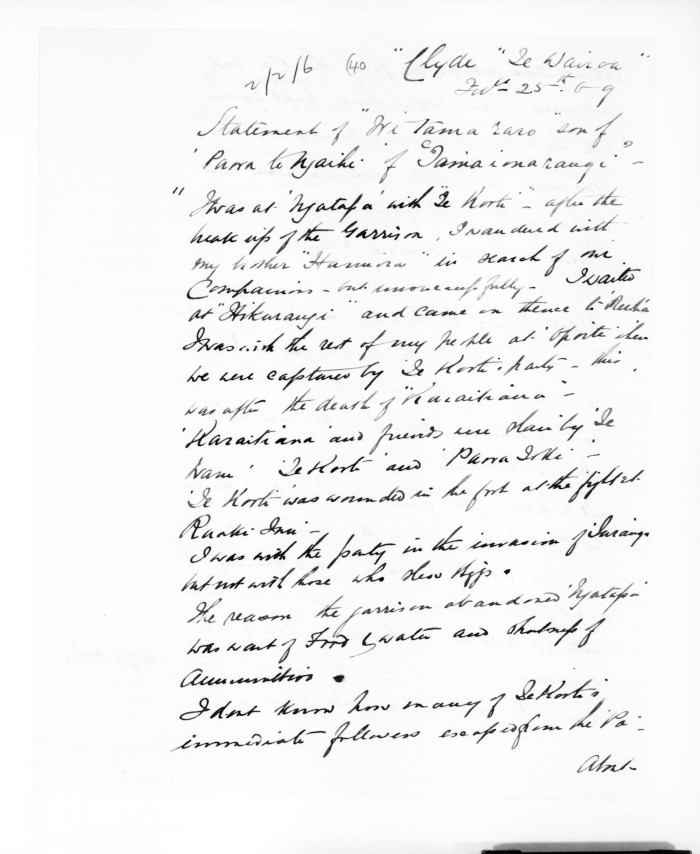 2/2/6 (40 "Clyde" "Te Wairoa"
Feb. 25th 69
Statement of "Wi Tamararo" son of
"Paora te Ngaihi" of "Tamaionarangi" -
"I was at 'Ngatapa' with "Te Korti" - after the
break up of the Garrison, I wandered with
my brother "Hamiora" in search of our
Companions - but unsuccessfully - I waited
at "Hikurangi" and came on thence to
I was with the rest of my people at 'Opoiti' when
we were captured by Te Korti's party - this
was after the death of "Karaitiana" -
'Karaitiana' and friends were slain by 'Te
Waru' 'Te Korti' and 'Paora Toki' -
'Te Korti' was wounded in the foot at the fight at
Ruaki Turi -
I was with the party in the invasion of Turanga
but not with those who slew Biggs.
The reason the garrison abandoned 'Ngatapa'
was want of Food & water and shortness of
Ammunition.
I dont know how many of Te Korti's
immediate followers escaped from the Pa -
About